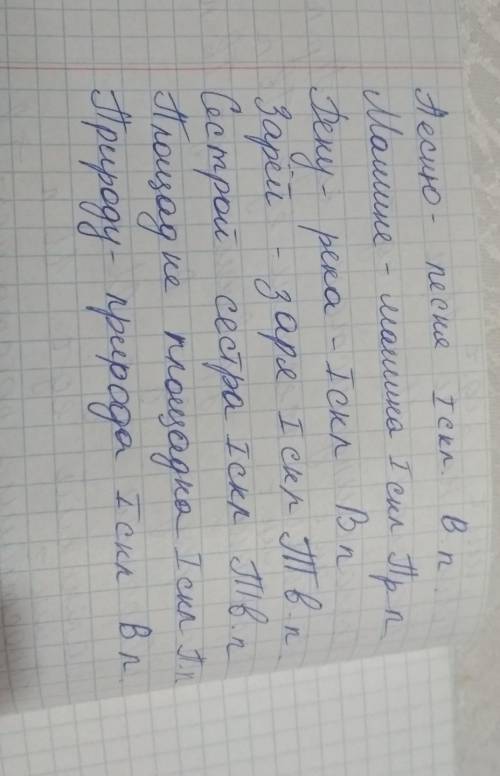 Песню - песня I скл. В п.
Машине - машина I скл Пр п
Реку - река - I скл В п
Зарёй - заря I скл Т в. п.
Сестрой сестра I скл Тв. п
Площадке площадка I скл П. п
Природу - природа I скл В п.